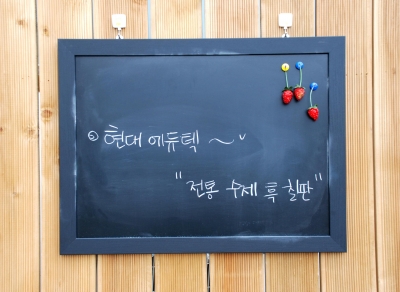 현대 에듀텍 ~
"전통 수제 흑 칠판"